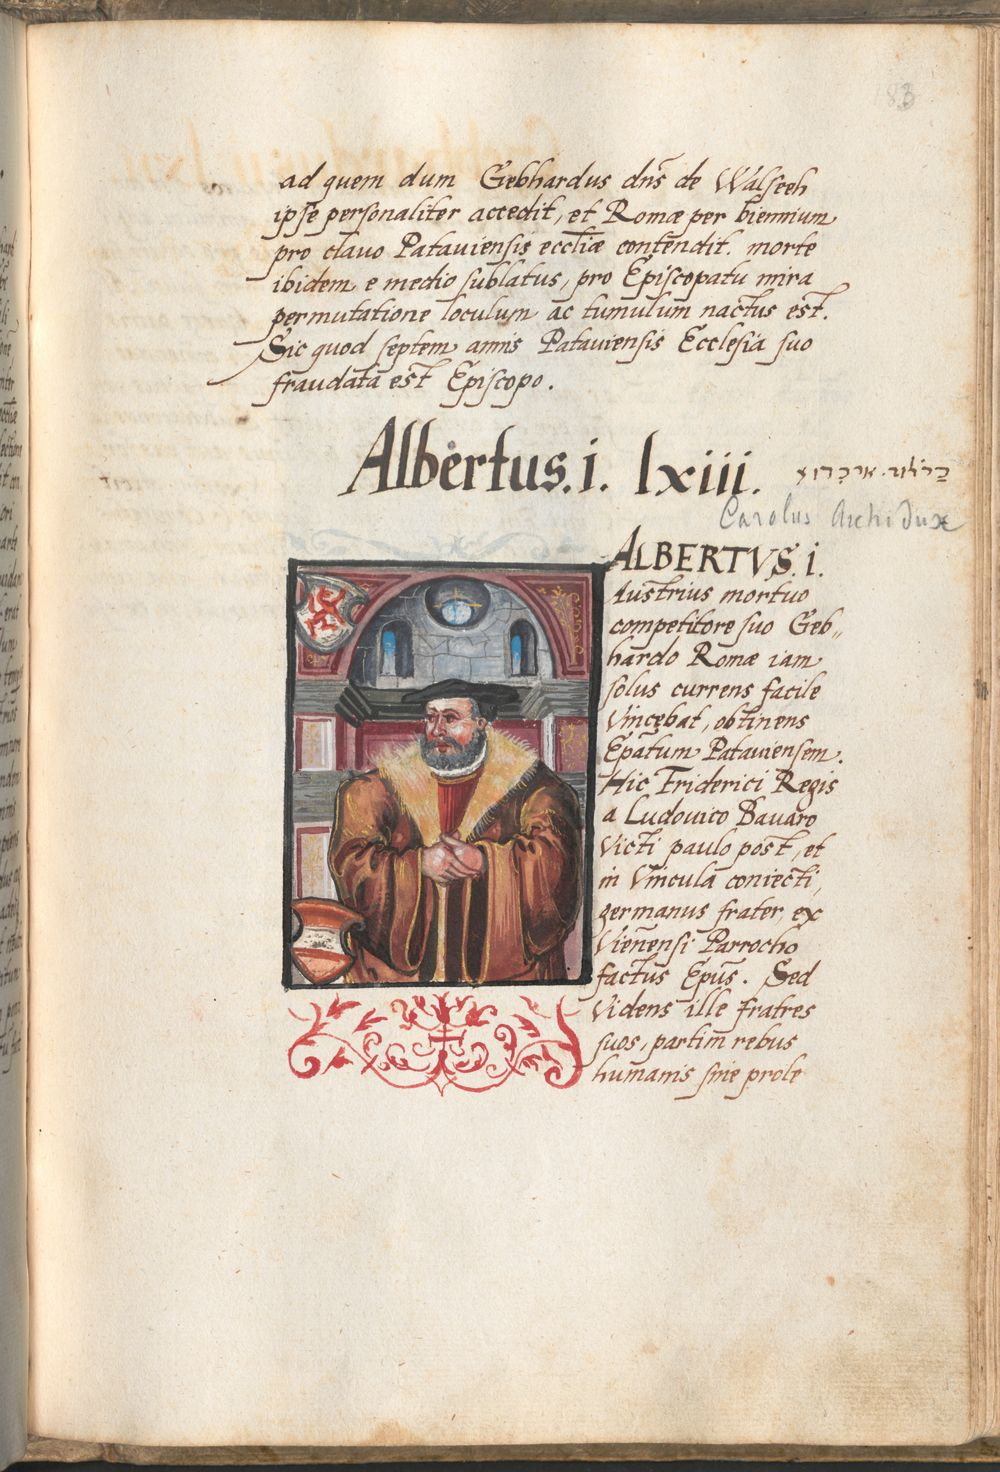 183
ad quem dum Gebhardus dn̄s de Walseeh
ipse personaliter accedit, et Romæ per biennium
pro clavo Pataviensis eccl̄iæ contendit. morte
ibidem e medio sublatus, pro Episcopatu mira
permutatione loculum ac tumulum nactus est.
Sic quod septem annis Pataviensis Ecclesia suo
fraudata est Episcopo.
Albertus.i. lxiii.
Carolus Archidux
ALBERTVS.i.
Austrius mortuo
competitore suo Geb„
hardo Romæ iam
solus currens facile
Vincebat, obtinens
Ep̄atum Pataviensem.
Hic Friderici Regis
a Ludovico Bavaro
Victi paulo post, et
in Vincula coniecti,
germanus frater, ex
Vien̄ensi Parrocho
factus Ep̄us. Sed
Videns ille fratres
suos, partim rebus
humanis sine prole